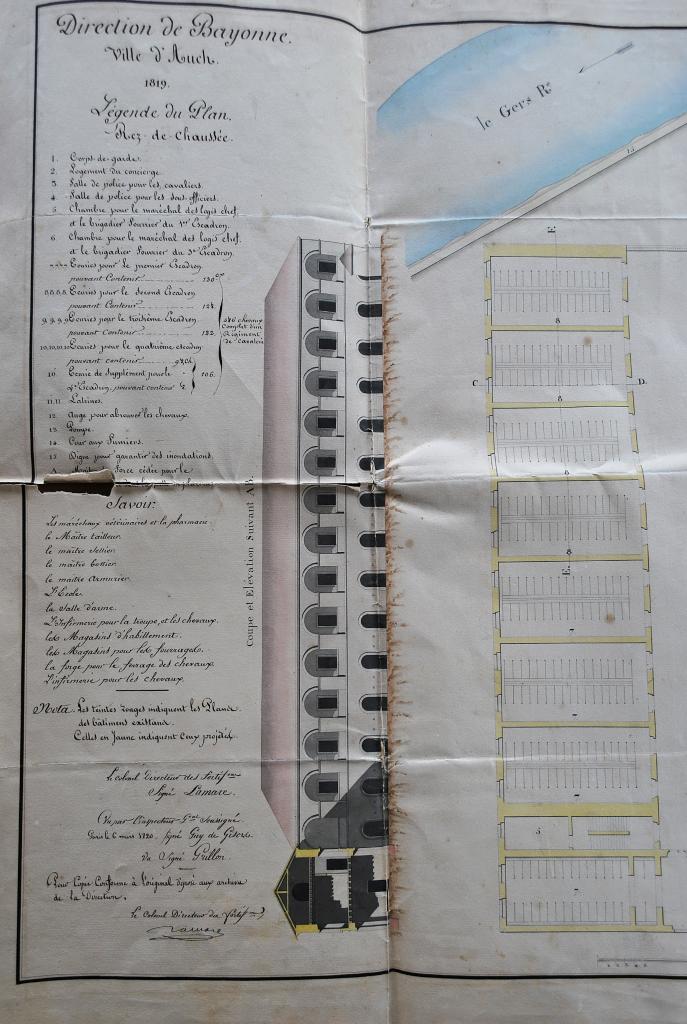 Direction de Bayonne.
Ville d'Auch.
1819.
Légende du Plan.
Rez-de-Chaussée.
1. Corps-de-garde.
2. Logement du concierge.
3. Salle de police pour les cavaliers.
4. Salle de police pour les Sous officiers.
5 Chambre pour le maréchal des logis chef,
et le brigadier Fourrier du 1er Escadron.
6 Chambre pour le maréchal des logis chef
et le brigadier Fourrier du 3e Escadron.
Ecuries pour le premier Escadron
pouvant Contenir 130 chx
8,8,8,8. Ecuries pour le second Escadron
pouvant Contenir 124.
9,9,9,9 Ecuries pour le troisième Escadron
pouvant Contenir 122.
10,10,10,10 Ecuries pour le quatrième escadron
pouvant contenir
10. Ecurie de Supplément pour le
4e Escadron, pouvant contenir
106.
chevaux
Complet d'un
Régiment
de cavalerie
11.11. Latrines.
12. Auge pour abreuver les chevaux.
13. Pompe.
14. Cour aux Fumiers.
15 Digue pour garantir des inondations.
cédée pour le
Savoir.
Les maréchaux vétérinaires et la pharmacie.
le Maître tailleur.
le maître Sellier.
le maître bottier.
le maître Armurier.
L'Ecole.
la Salle d'arme.
L'Infirmerie pour la troupe, et les chevaux.
les Magasins d'habillement.
les Magasins pour les fourrages.
la forge pour le ferrage des chevaux.
L'infirmerie pour les chevaux.
Nota. Les teintes rouges indiquent les Plans
des bâtimens existans.
Celles en Jaune indiquent Ceux projetés.
le colonel Directeur des Fortifons
Signé Lamare.
Vu par l'inspecteur Gal Soussigné
Paris le 6 mars 1820. Signé Guy de
Vu Signé Prillon
Pour Copie Conforme à l'original déposé aux archives
de la Direction.
le Colonel Directeur des fortif
Lamare
Coupe et Elevation Suivant AB.
le Gers Re
15
E.
8
C.
D.
8
8
8
E.
7
7
7
5
7